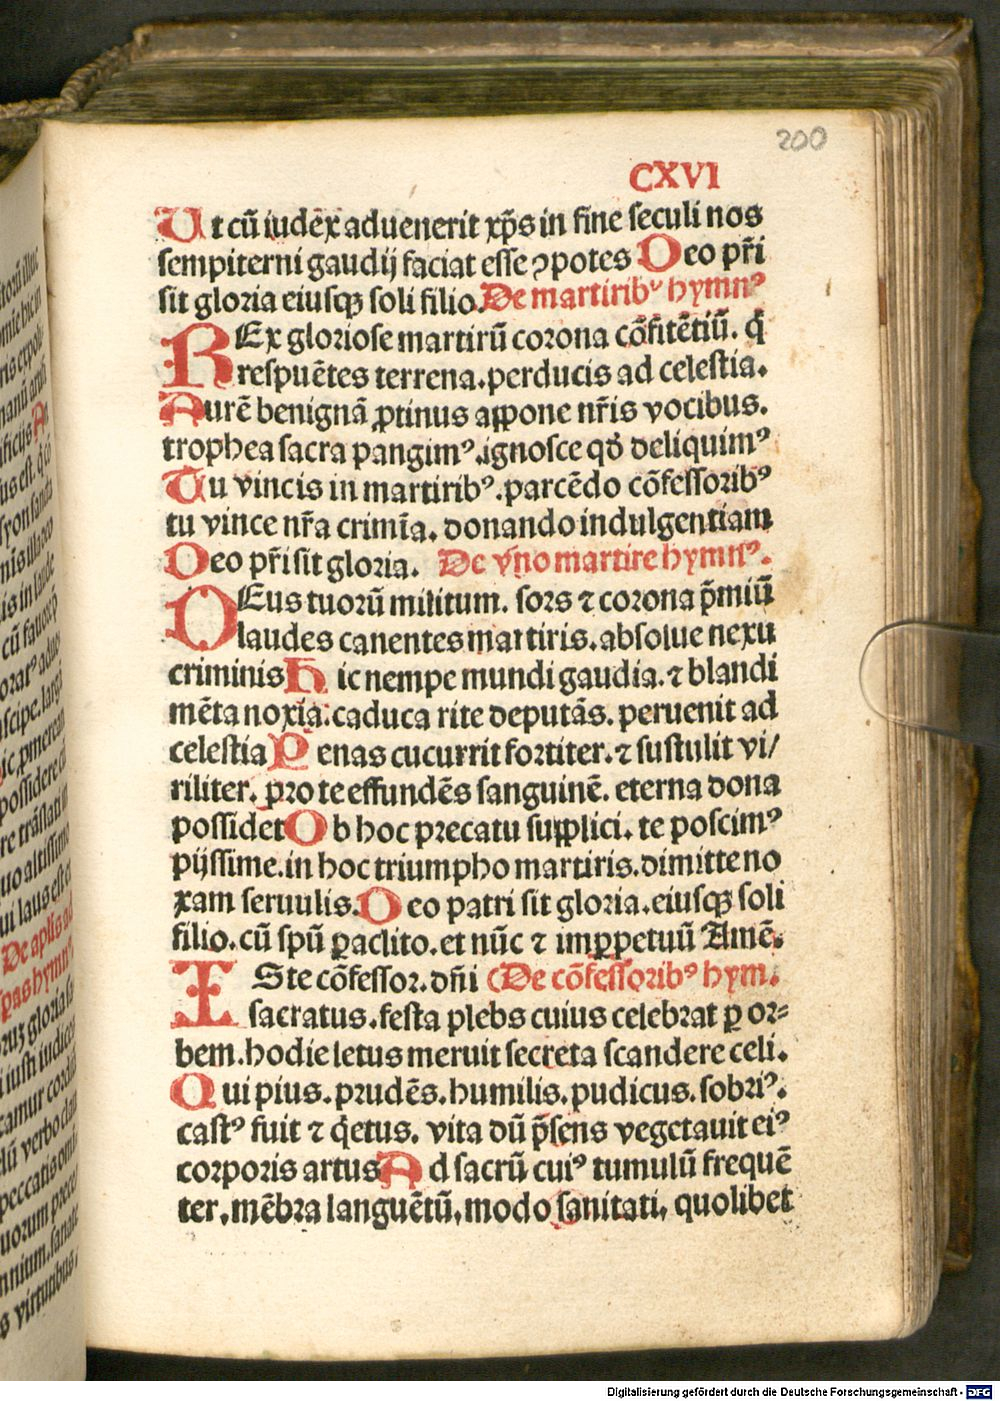 200
CXVI
Ut cū iudex aduenerit xp̄s in fine seculi nos
sempiterni gaudij faciat esse ꝯpotes Deo pr̄i
sit gloria eiusqꝫ soli filio. De martiribꝰ hymnꝰ
REx gloriose martirū corona cōfitētiū. q̄
respuētes terrena. perducis ad celestia.
Aurē benignā ꝓtinus appone nr̄is vocibus.
trophea sacra pangimꝰ. ignosce qd̄ deliquimꝰ
Tu vincis in martiribꝰ. parcēdo cōfessoribꝰ
tu vince nr̄a crimīa. donando indulgentiam
Deo pr̄i sit gloria. De vno martire hymnꝰ.
DEus tuorū militum. sors ⁊ corona p̄miū
laudes canentes martiris. absolue nexu
criminis Hic nempe mundi gaudia. ⁊ blandi
mēta noxia. caduca rite deputās. peruenit ad
celestia Penas cucurrit fortiter. ⁊ sustulit vi/
riliter. pro te effundēs sanguinē. eterna dona
possidet Ob hoc precatu supplici. te poscimꝰ
pijssime. in hoc triumpho martiris. dimitte no
xam seruulis. Deo patri sit gloria. eiusqꝫ soli
filio. cū spū ꝑaclito. et nūc ⁊ imꝑpetuū Amē.
ISte cōfessor. dn̄i (De cōfessoribꝰ hym.
sacratus. festa plebs cuius celebrat ꝑ or⸗
bem. hodie letus meruit secreta scandere celi.
Qui pius. prudēs. humilis. pudicus. sobriꝰ.
castꝰ fuit ⁊ q̄etus. vita dū p̄sens vegetauit eiꝰ
corporis artus Ad sacrū cuiꝰ tumulū frequē
ter. mēbra languētū. modo sanitati. quolibet
Digitalisierung gefördert durch die Deutsche Forschungsgemeinschaft - DFG